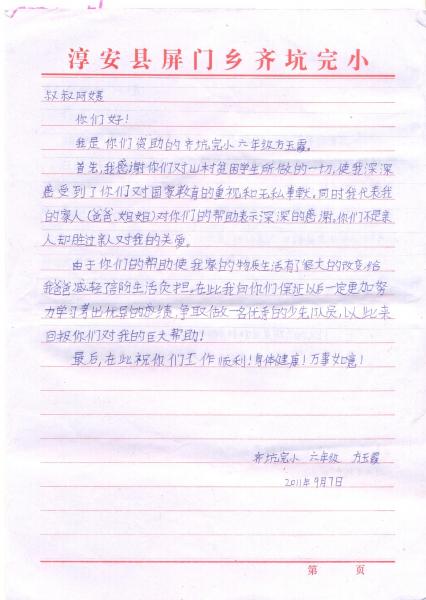 淳安县屏门乡齐坑完小
叔叔阿姨
你们好！
我是你们资助的齐坑完小六年级方玉霞。
首先,我感谢你们对山村贫困学生所做的一切,使我深深
感受到了你们对国家教育的重视和无私奉献。同时我代表我
的家人(爸爸、姐姐)对你们的帮助表示深深的感谢。你们不是亲
人却胜过亲人对我的关爱。
由于你们的帮助使我家的物质生活有了很大的改变,给
我爸爸减轻了生活负担。在此我向你们保证以后一定更加努
力学习考出优异的成绩,争取做一名优秀的少先队员,以此来
回报你们对我的巨大帮助！
最后,在此祝你们工作顺利！身体健康！万事如意！
齐坑完小 六年级 方玉霞
2011年9月7日
第 页